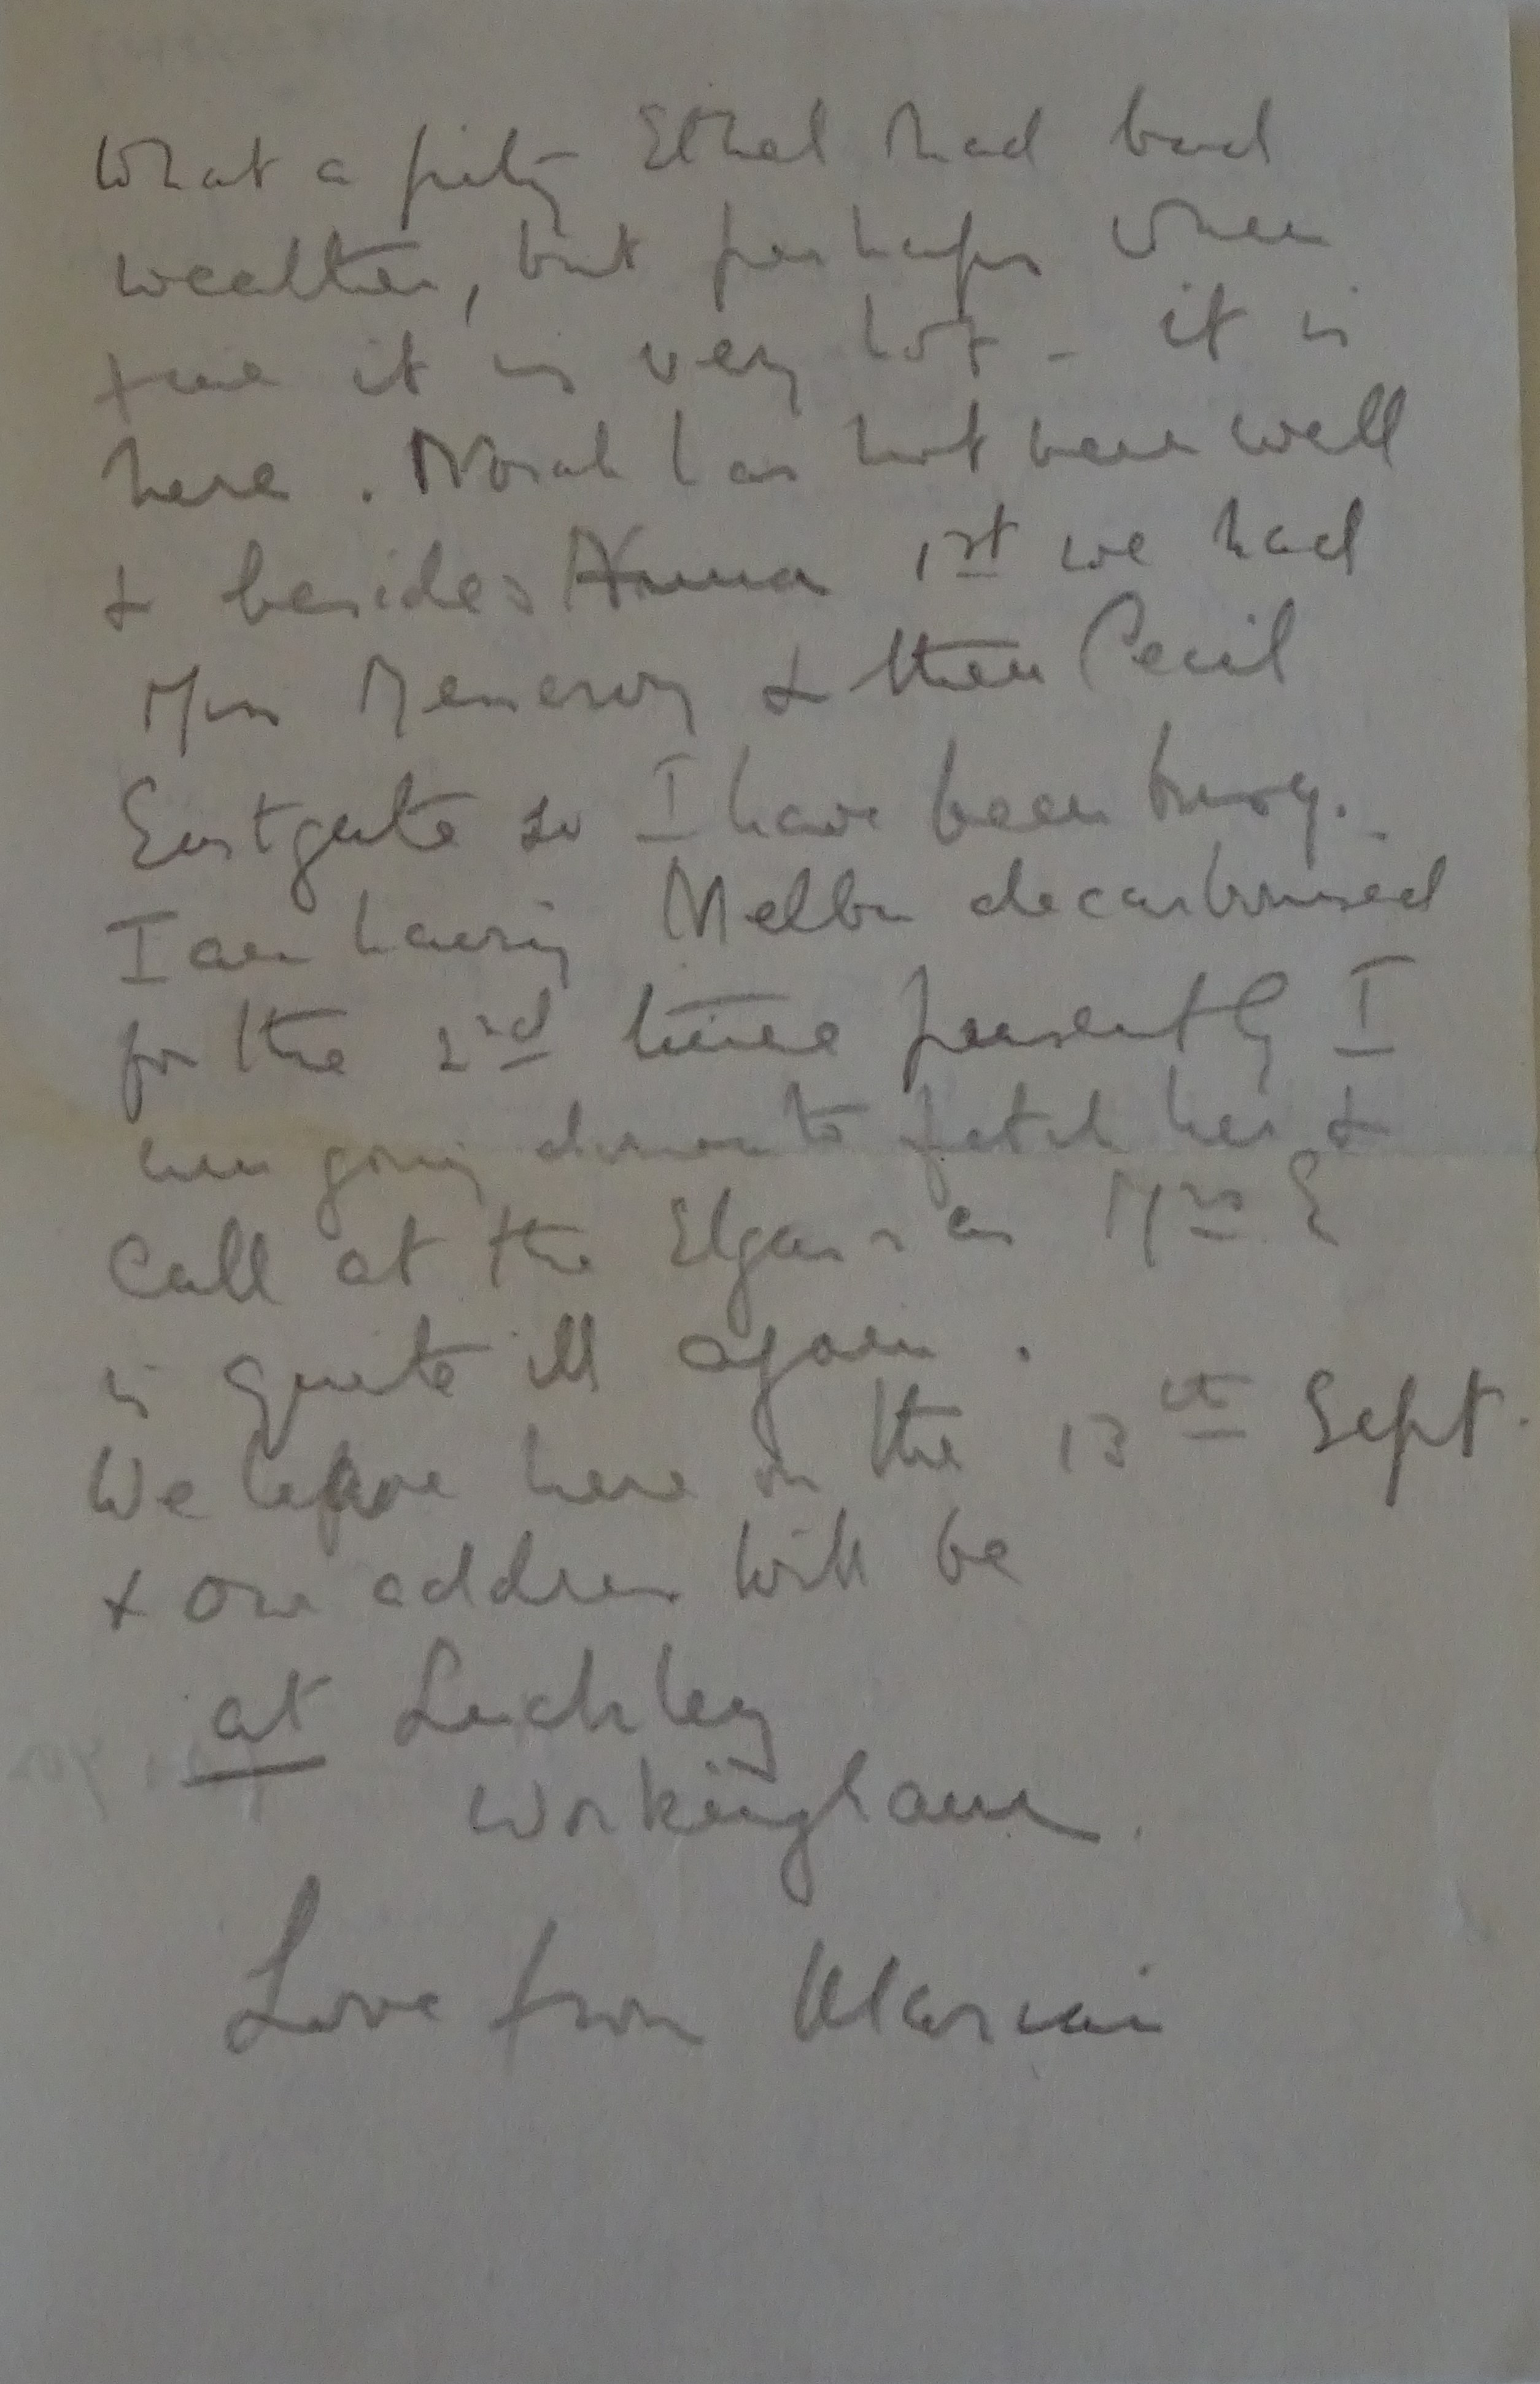 What a pity Ethel had bad
weather, but perhaps when
fine it is very hot - it is
here. Norah has not been well
& besides Anna 1st we had
Miss & then Cecil
Eastgate so I have been busy.
I am having Melba decarbonised
for the 2nd time presently I
am going down to fetch her &
call at the Elgars as Mrs E
is quite ill again.
We leave here on the 13th Sept.
& our address will be
at Luckley
Workingham.
Love from